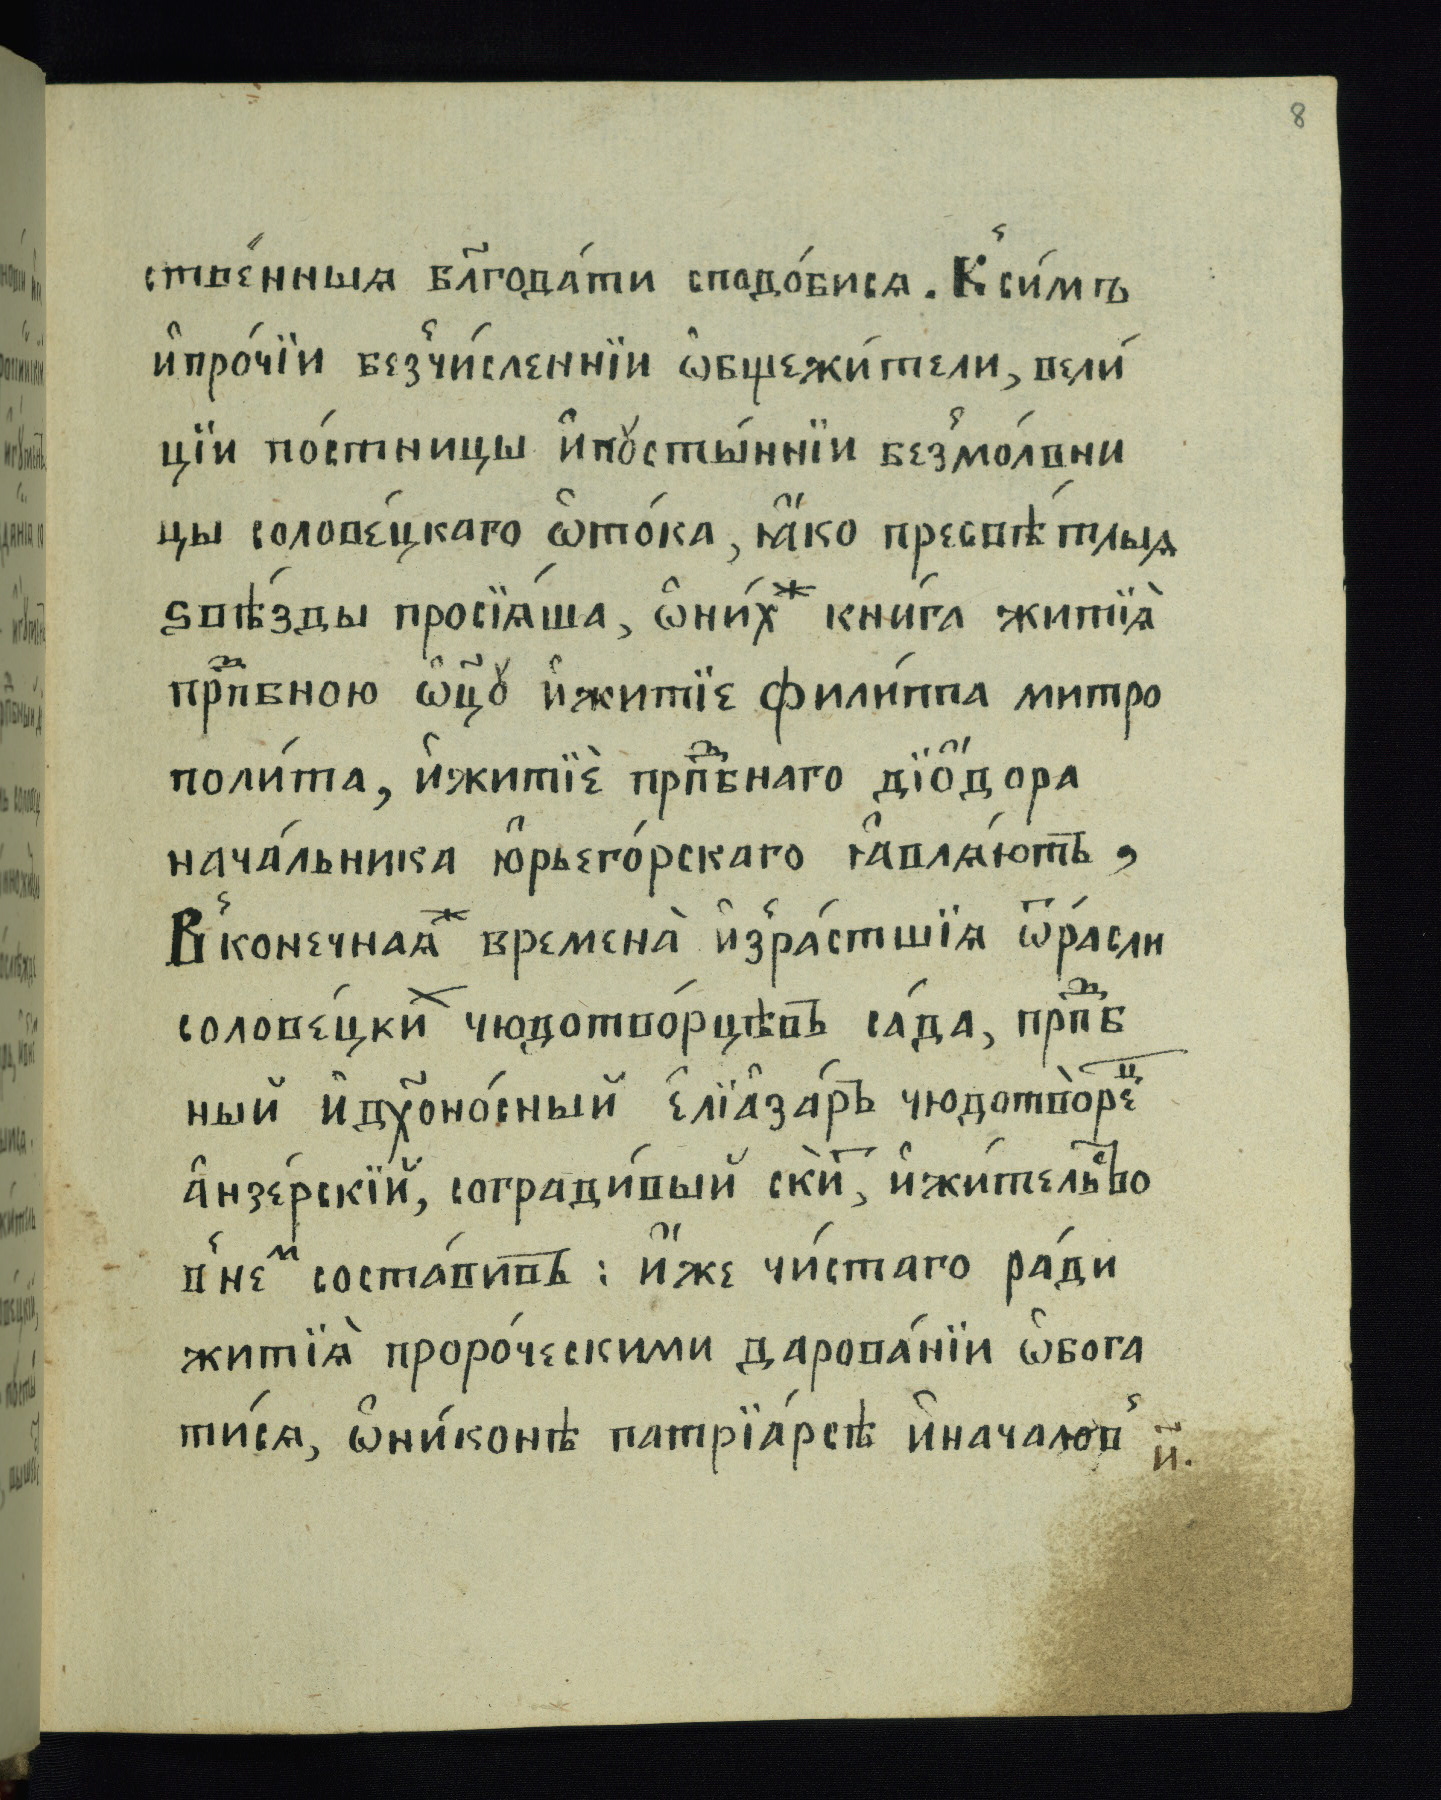 8
ствéнныѧ бл҃года́ти сподо́бисѧ. К̾си́мъ
и҆про́чїи без̾чи́сленнїи ѡ҆бщежи́тели, вели́
цїи по́стницы и҆пꙋсты́ннїи без̾мо́лвни
цы солове́цкаго ѻ҆то́ка, ꙗ҆́ко пресвѣ́тлыѧ
ѕвѣ́зды просїѧ́ша, ѡ҆ни́хⷤ кни́га житїѧ̀
прпⷣбною ѻ҆ц҃ꙋ̀ и҆житїе фили́ппа митро
поли́та, и҆житїѐ прпⷣбнаго дїѻ҆́дора
нача́льника ю҆рьего́рскаго ꙗ҆влѧ́ютъ,
В̾конечнаѧⷤ временà и҆з̾ра́стшїѧ ѿра́сли
солове́цкиⷯ чюдотво́рцѣвъ са́да, прпⷣб
ный и҆дх҃оно́сный є҆лїа҆за́ръ чюдотво́реⷰ
а҆нзе́рскїй, согради́вый ски́тⷮ, и҆жи́тельⷭ҇во
в̾неⷨ соста́вивъ: и҆́же чи́стаго ра́ди
житїѧ̀ проро́ческими дарова́нїи ѡ҆бога
ти́сѧ, ѡ҆ни́конѣ патрїа́рсѣ и҆началѡв̾
и҃.